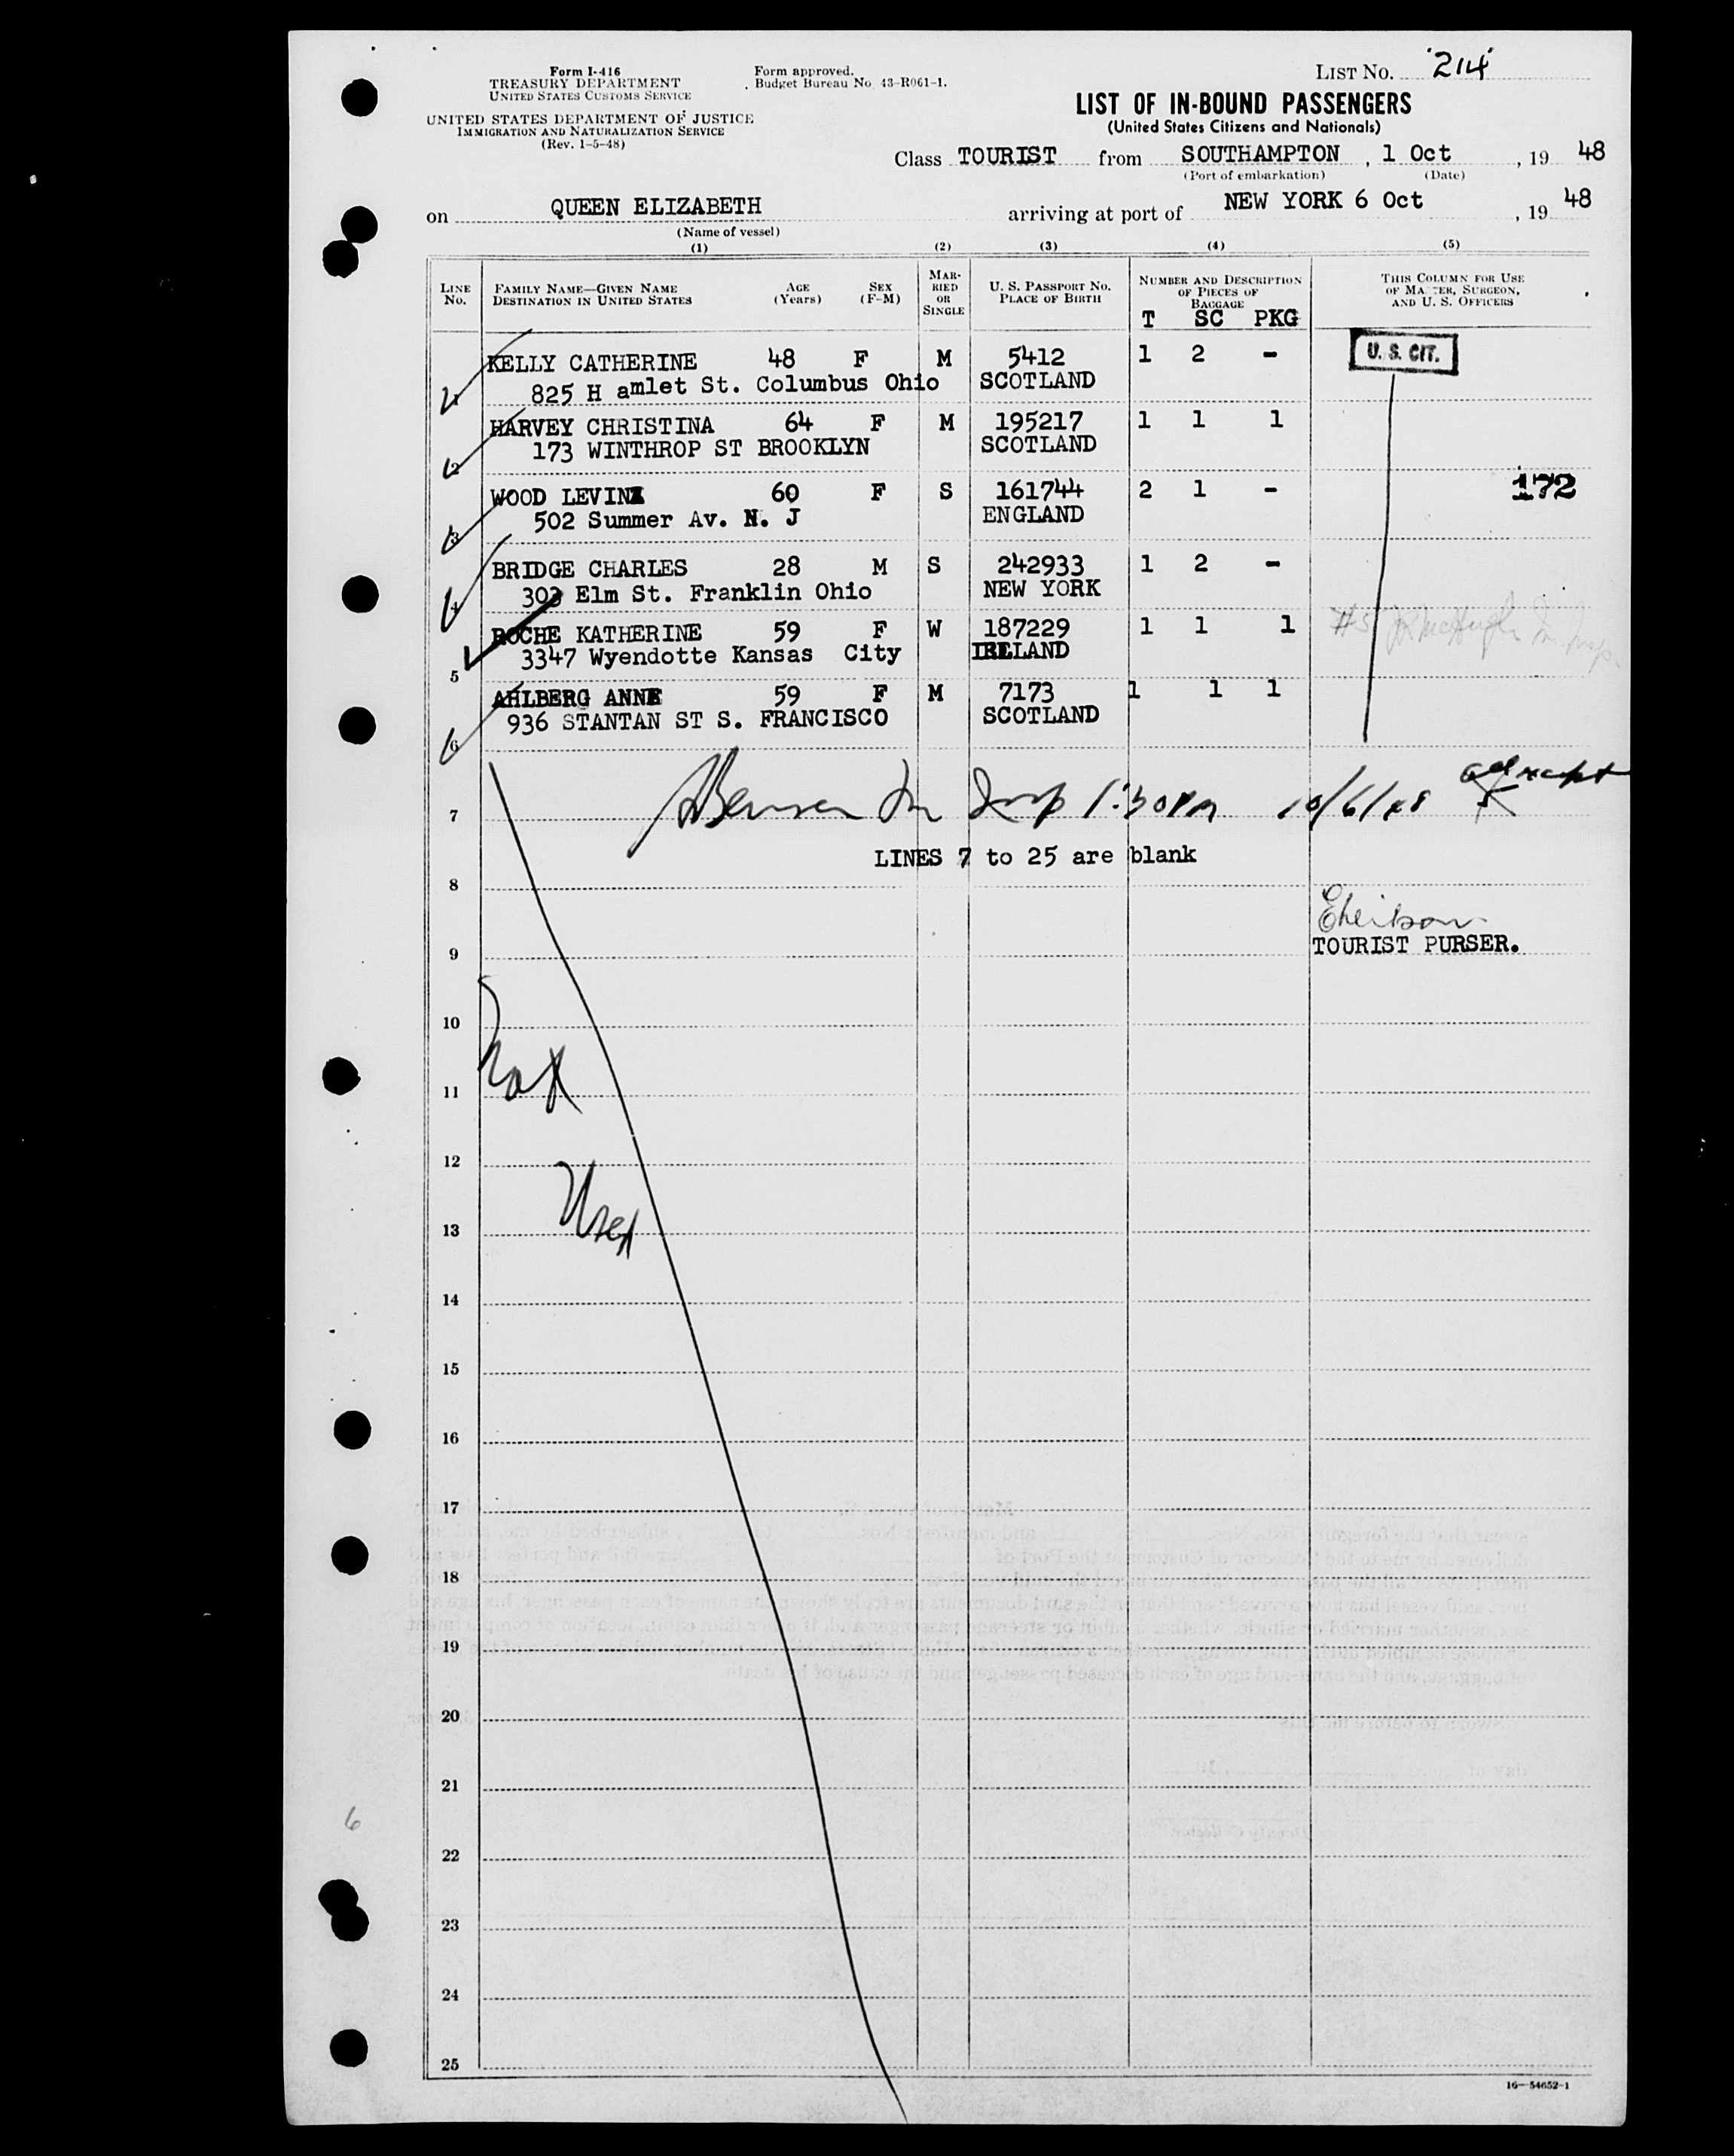 Form I-416
TREASURY DEPARTMENT
UNITED STATES CUSTOMS SERVICE
UNITED STATES DEPARTMENT OF JUSTICE
IMMIGRATION AND NATURALIZATION SERVICE
(Rev. 1-5-48)
Form approved.
Budget Bureau No. 43-R061-1.
LIST No. 214
LIST OF IN-BOUND PASSENGERS
(United States Citizens and Nationals)
Class TOURIST from SOUTHAMPTON , 1 Oct , 19 48
(Port of embarkation) (Date)
on QUEEN ELIZABETH arriving at port of NEW YORK 6 Oct , 19 48
(Name of vessel)
(1) (2) (3) (4) (5)
LINE No. FAMILY NAME—GIVEN NAME DESTINATION IN UNITED STATES AGE (Years) SEX (F-M) MARRIED OR SINGLE U. S. PASSPORT No. PLACE OF BIRTH NUMBER AND DESCRIPTION OF PIECES OF BAGGAGE THIS COLUMN FOR USE OF MASTER, SURGEON, AND U. S. OFFICERS
T SC PKG
KELLY CATHERINE 48 F M 5412 1 2 - U. S. CIT.
1 825 H amlet St. Columbus Ohio SCOTLAND
HARVEY CHRISTINA 64 F M 195217 1 1 1
2 173 WINTHROP ST BROOKLYN SCOTLAND
WOOD LEVINA 60 F S 161744 2 1 - 172
3 502 Summer Av. N. J ENGLAND
BRIDGE CHARLES 28 M S 242933 1 2 -
4 303 Elm St. Franklin Ohio NEW YORK
ROCHE KATHERINE 59 F W 187229 1 1 1 #5
5 3347 Wyendotte Kansas City IRELAND
AHLBERG ANNE 59 F M 7173 1 1 1
6 936 STANTAN ST S. FRANCISCO SCOTLAND
7 Insp 1:30 PM 10/6/48 all except 5
LINES 7 to 25 are blank
8
9 TOURIST PURSER.
10
11 Not
12
13 Used
14
15
16
17
18
19
20
21
22
23
24
25
6
16-54652-1